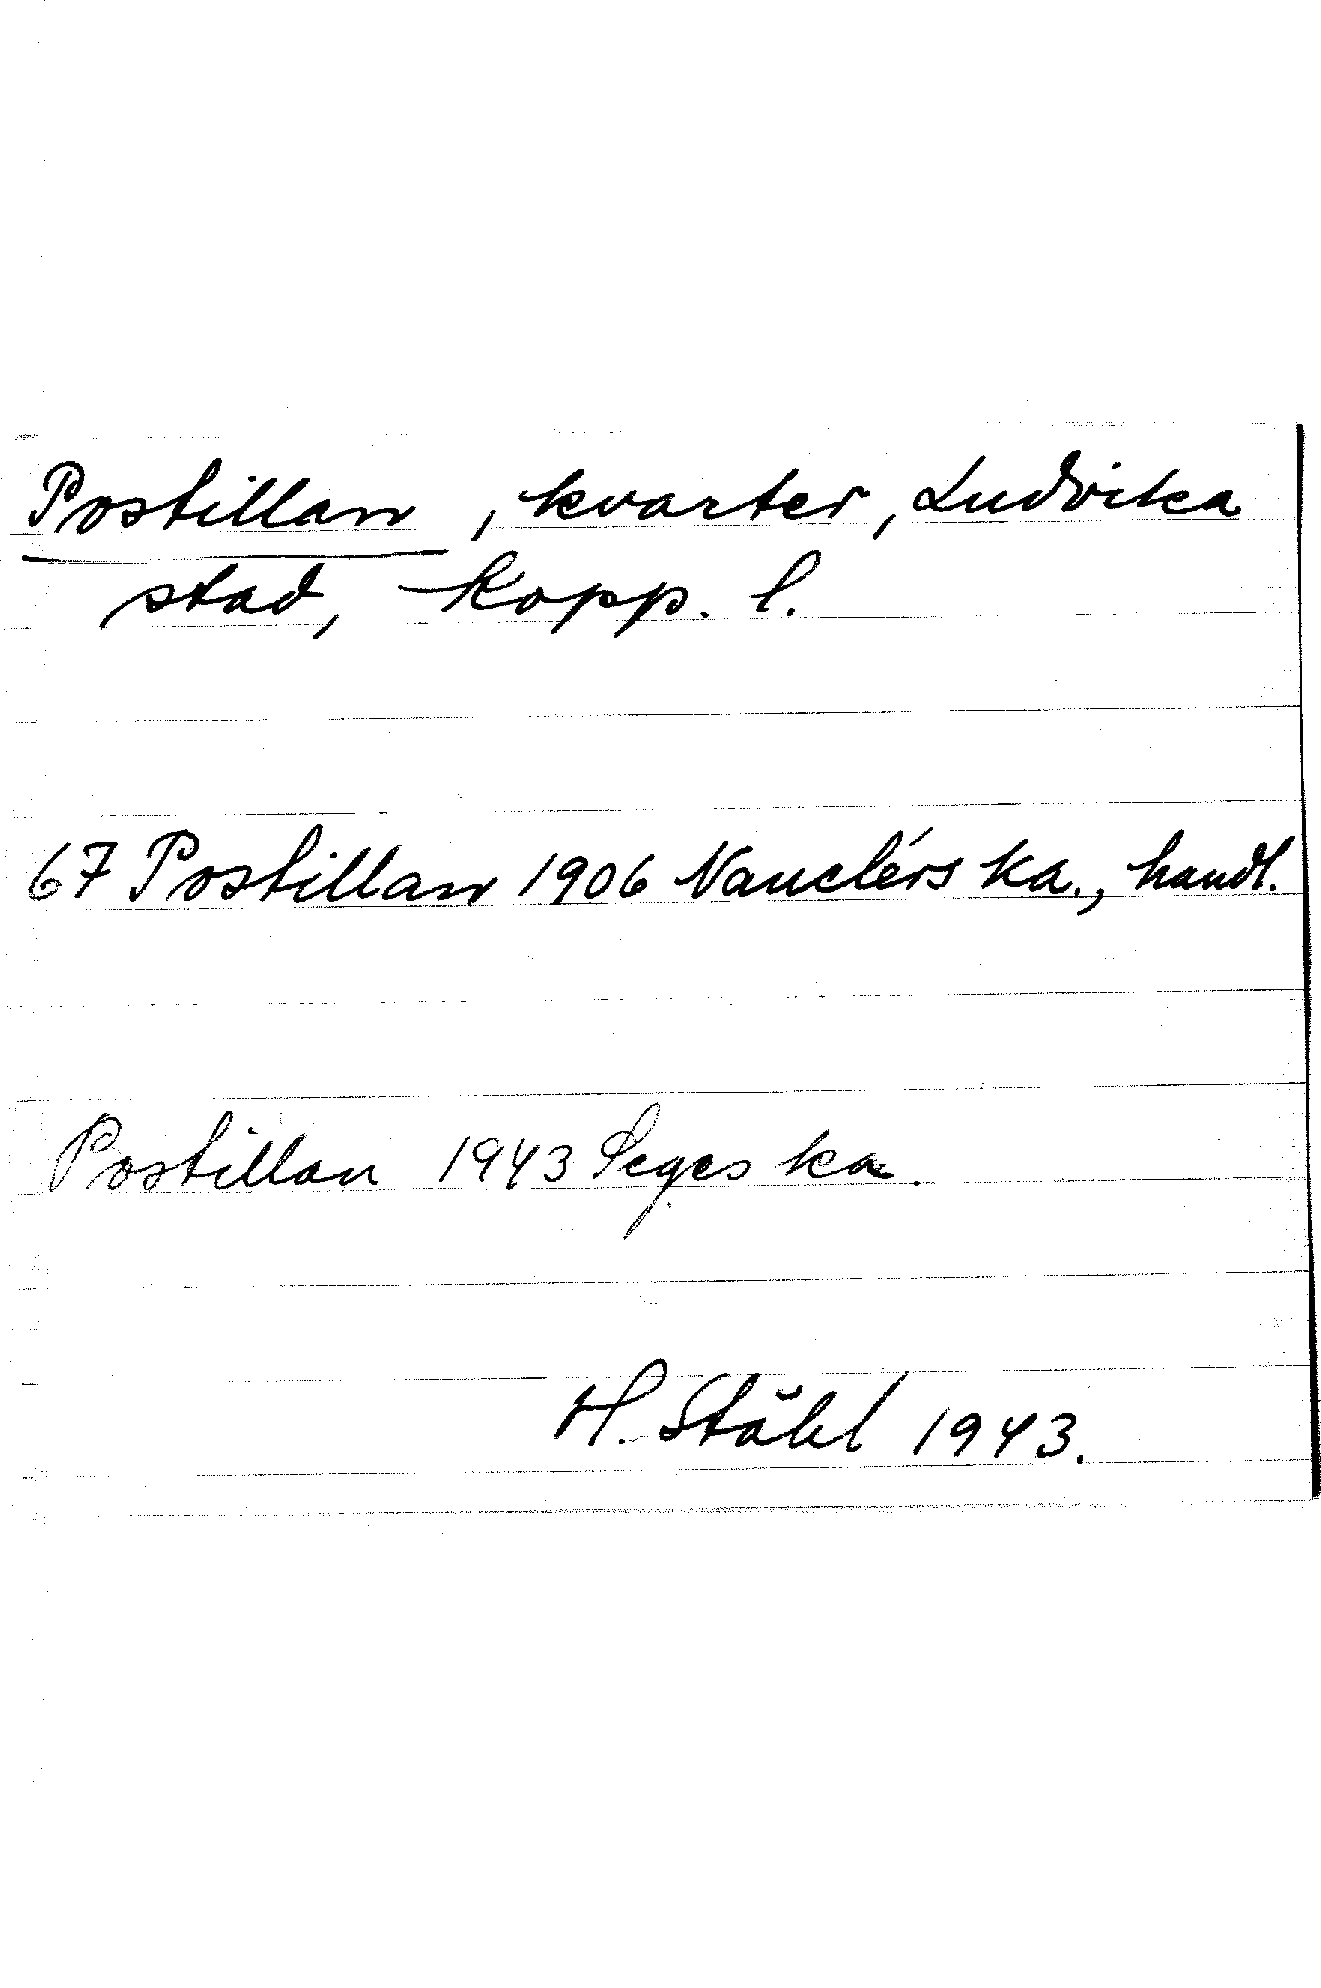 Postillan, kvarter, Ludvika
stad, Kopp. l.
67 Postillan 1906 Nauclérs ka., handl.
Postillan 1943 Seges ka.
H. Ståhl 1943.